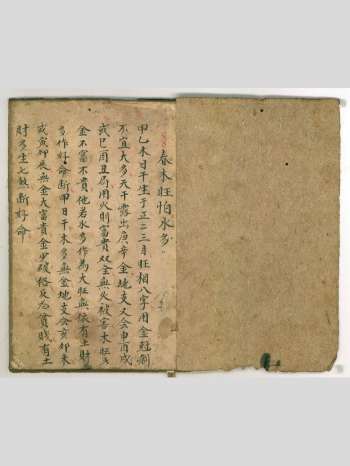 春木旺怕水多
甲乙木日干生于正二三月旺相八字用金冠制
不宜大多天干露出庚辛金地支又会申酉戌
或巳酉丑局用火則富貴双全無火被害木旺
金不富不貴他若水多作為大旺無依有土財
多作好命断甲日干木多無金地支会亥卯未
或寅卯辰無金大富貴金少破格反為貧賤有土
財多生七煞断好命